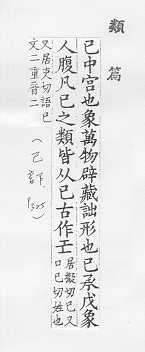 類篇
己中宮也象萬物辟藏詘形也己承戊象
人腹凡己之類皆从己古作
居擬切己又
口己切姓也
又居吏切語己
文二重音二